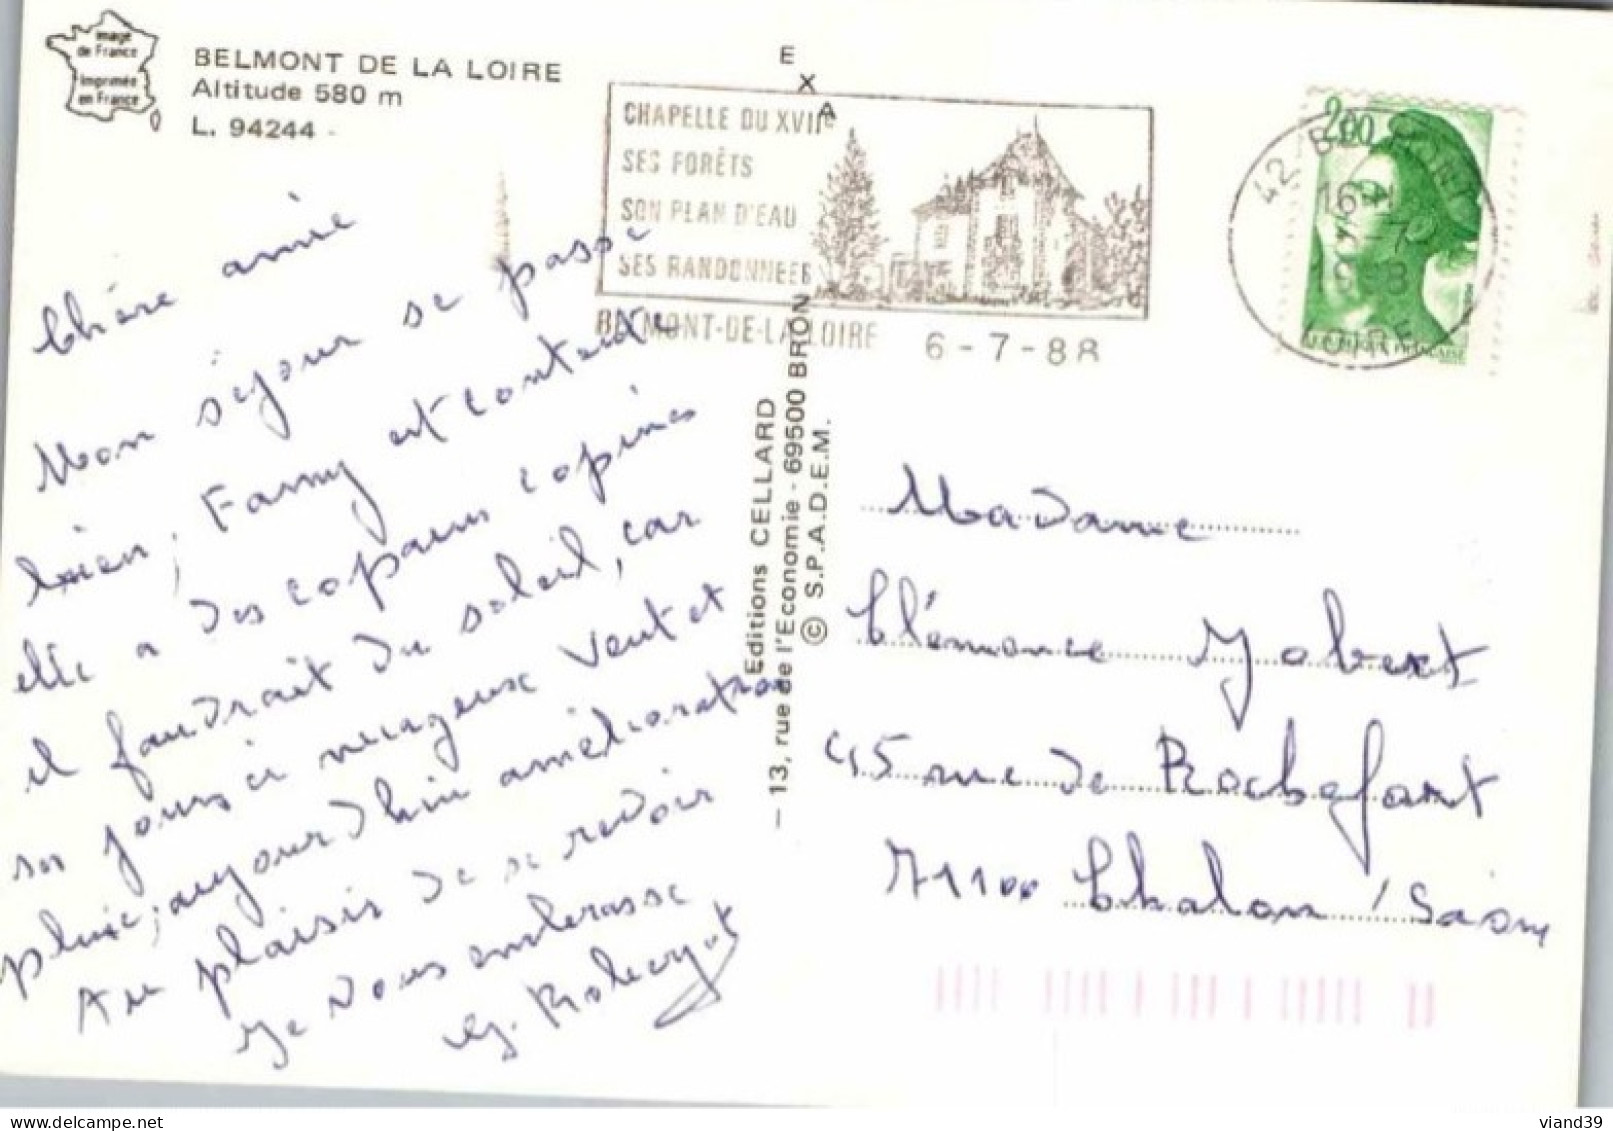 Image
de France
Imprimée
en France
BELMONT DE LA LOIRE
Altitude 580 m
L. 94244
EXA
CHAPELLE DU XVIIe
SES FORÊTS
SON PLAN D'EAU
SES RANDONNEES
BELMONT-DE-LA LOIRE 6-7-88
2,00
42 BELMONT
16H
LOIRE
Chère amie
Mon séjour se passe
bien, Fanny est contente
elle a des copains copines
il faudrait du soleil, car
ses jours ci nuageux vent et
pluie, aujourd'hui amélioration
Au plaisir de se revoir
Je vous embrasse
Editions CELLARD
— 13, rue de l'Economie - 69500 BRON
© S.P.A.D.E.M.
Madame
Clémence Jobert
45 rue de Rochefort
71100 Chalon /Saône
viand39